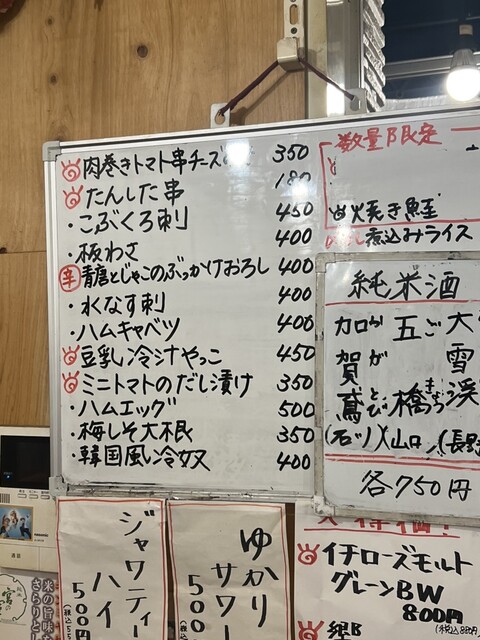 肉巻きトマト串チーズ 350
たんした串 180
・こぶくろ刺 450
・板わさ 400
辛 青唐とじゃこのぶっかけおろし 400
・水なす刺 400
・ハムキャベツ 400
豆乳冷汁やっこ 450
ミニトマトのだし漬け 350
・ハムエッグ 500
・梅しそ大根 350
・韓国風冷奴 400
数量限定
焼き鮭
煮込みライス
純米酒
加賀鳶 (石川)
五橋 (山口)
大雪渓 (長野
各750円
ジャワティーハイ 500
ゆかりサワー 500
イチローズモルト
グレーンBW
800円
(税込880円
郷